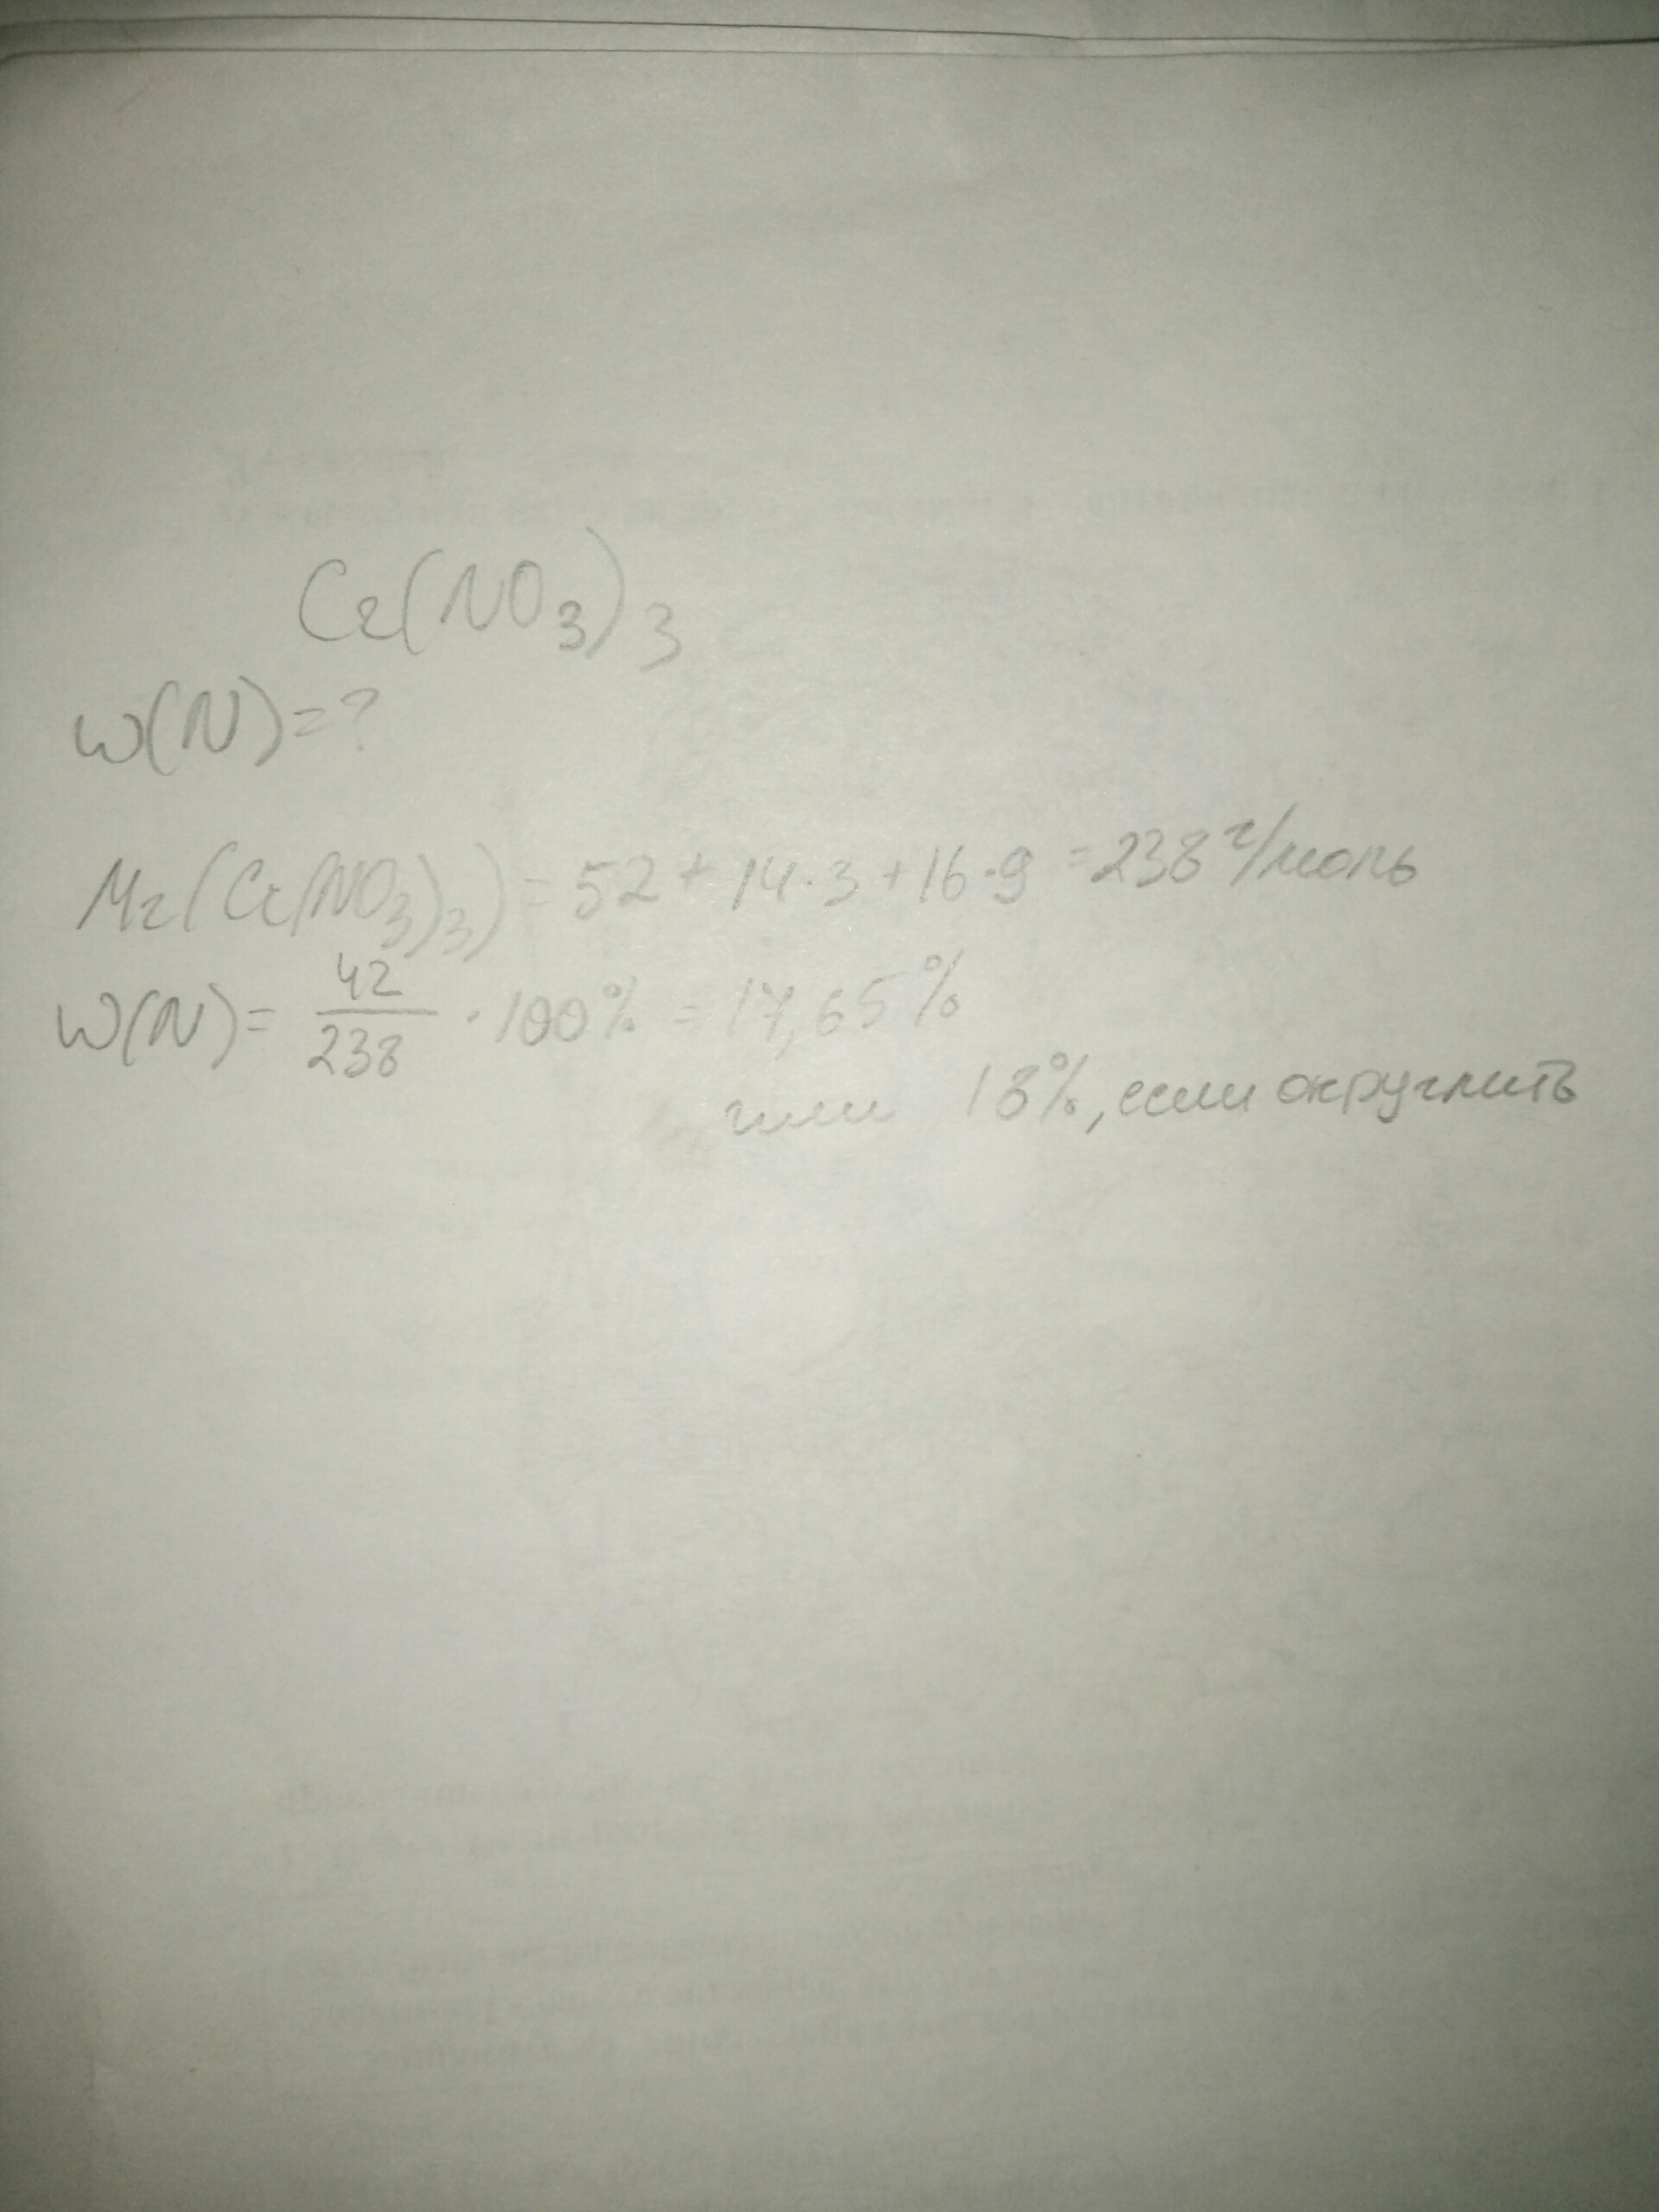 Cr(NO₃)₃
W(N)=?
Mr(Cr(NO₃)₃) = 52 + 14·3 + 16·9 = 238 г/моль
W(N) = 42/238 · 100% = 17,65%
или 18%, если округлить